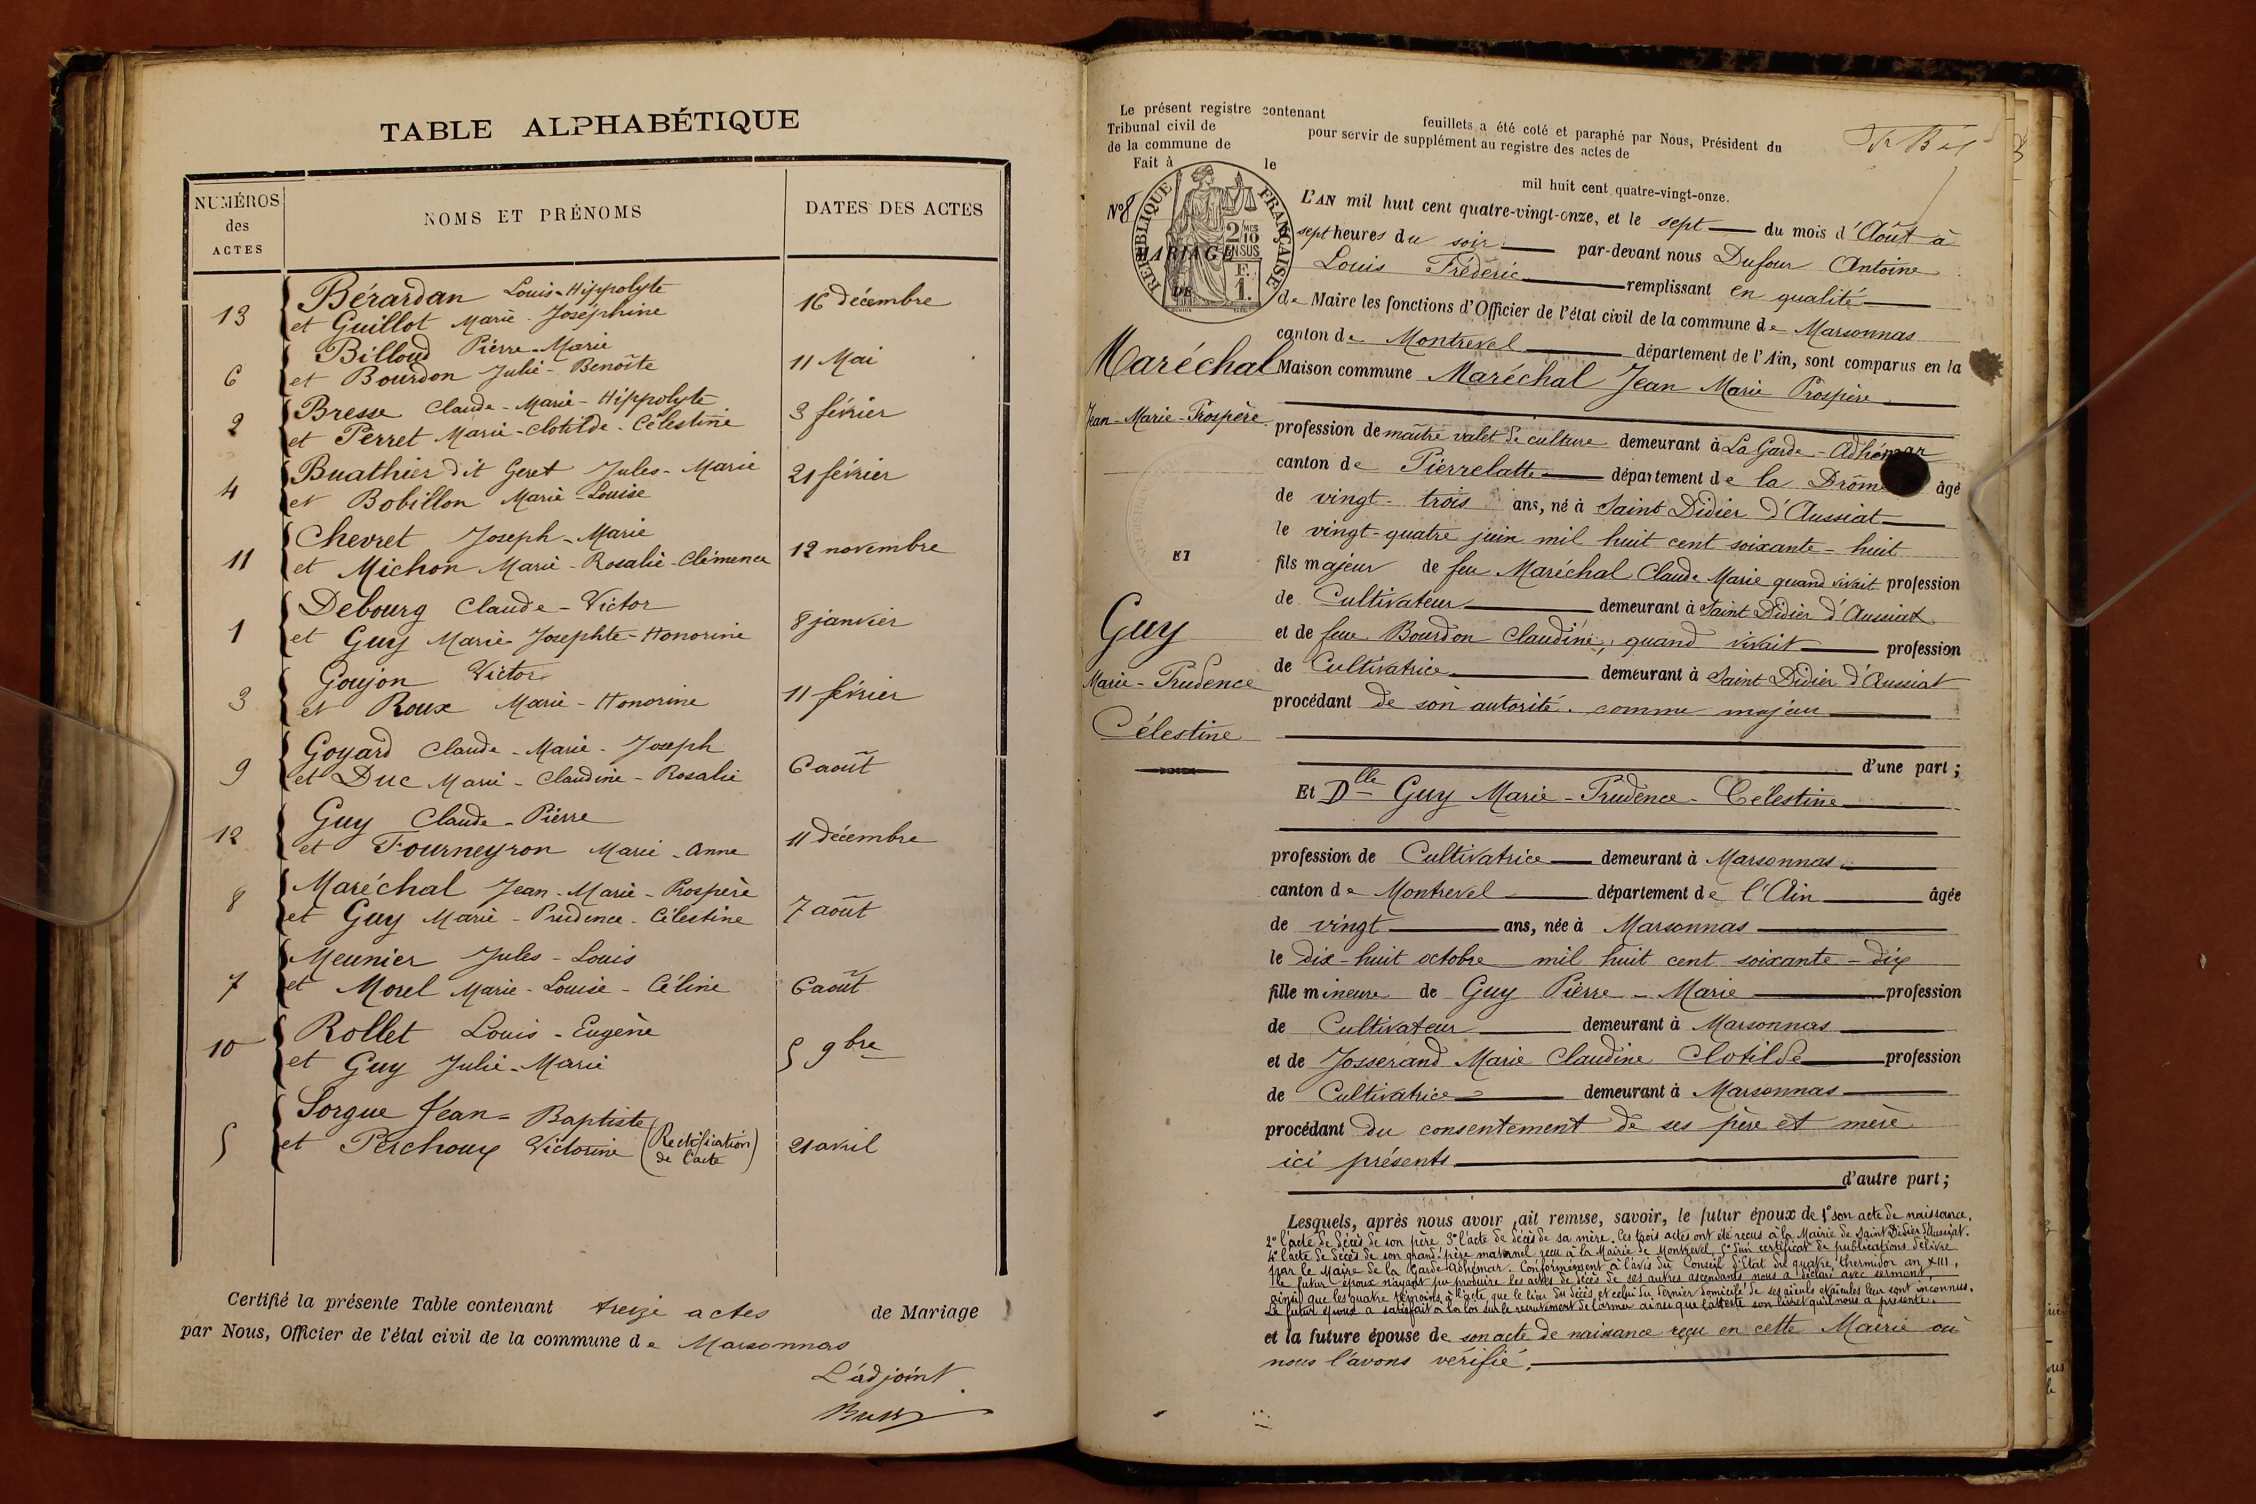 TABLE ALPHABÉTIQUE
NUMÉROS
des
ACTES
NOMS ET PRÉNOMS
DATES DES ACTES
13
Bérardan Louis-Hippolyte
et Guillot Marie-Joséphine
16 décembre
6
Billoud Pierre-Marie
et Bourdon Julie-Benoîte
11 Mai
2
Bresse Claude-Marie-Hippolyte
et Perret Marie-Clotilde-Célestine
3 février
4
Buathier dit Geret Jules-Marie
et Bobillon Marie-Louise
21 février
11
Chevret Joseph-Marie
et Michon Marie-Rosalie-Clémence
12 novembre
1
Debourg Claude-Victor
et Guy Marie-Josephte-Honorine
8 janvier
3
Goujon Victor
et Roux Marie-Honorine
11 février
9
Goyard Claude-Marie-Joseph
et Duc Marie-Claudine-Rosalie
6 août
12
Guy Claude-Pierre
et Fourneyron Marie-Anne
11 décembre
8
Maréchal Jean-Marie-Prospère
et Guy Marie-Prudence-Célestine
7 août
7
Meunier Jules-Louis
et Morel Marie-Louise-Céline
6 août
10
Rollet Louis-Eugène
et Guy Julie-Marie
5 9bre
5
Sorgue Jean-Baptiste
et Perchoux Victorine (Rectification de l'acte)
21 avril
Certifié la présente Table contenant treize actes de Mariage
par Nous, Officier de l'état civil de la commune de Marsonnas
L'adjoint
Le présent registre contenant feuillets a été coté et paraphé par Nous, Président du
Tribunal civil de pour servir de supplément au registre des actes de
de la commune de
Fait à le mil huit cent quatre-vingt-onze.
RÉPUBLIQUE FRANÇAISE
2/10 MES
EN SUS
F.
1.
N° 8
MARIAGE
DE
Maréchal
Jean-Marie-Prospère
ET
Guy
Marie-Prudence
Célestine
L'AN mil huit cent quatre-vingt-onze, et le sept du mois d'Août à
sept heures du soir par-devant nous Dufour Antoine
Louis Fréderic remplissant en qualité
de Maire les fonctions d'Officier de l'état civil de la commune de Marsonnas
canton de Montrevel département de l'Ain, sont comparus en la
Maison commune Maréchal Jean Marie Prospère
profession de maître valet de culture demeurant à La Garde-Adhémar
canton de Pierrelatte département de la Drôme âgé
de vingt-trois ans, né à Saint Didier d'Aussiat
le vingt-quatre juin mil huit cent soixante-huit
fils majeur de feu Maréchal Claude Marie quand vivait profession
de Cultivateur demeurant à Saint Didier d'Aussiat
et de feue Bourdon Claudine, quand vivait profession
de Cultivatrice demeurant à Saint Didier d'Aussiat
procédant de son autorité comme majeur
d'une part ;
Et Dlle Guy Marie-Prudence-Célestine
profession de Cultivatrice demeurant à Marsonnas
canton de Montrevel département de l'Ain âgée
de vingt ans, née à Marsonnas
le dix-huit octobre mil huit cent soixante-dix
fille mineure de Guy Pierre-Marie profession
de Cultivateur demeurant à Marsonnas
et de Josserand Marie Claudine Clotilde profession
de Cultivatrice demeurant à Marsonnas
procédant du consentement de ses père et mère
ici présents
d'autre part ;
Lesquels, après nous avoir fait remise, savoir, le futur époux de 1° son acte de naissance,
2° l'acte de décès de son père 3° l'acte de décès de sa mère. Ces trois actes ont été reçus à la Mairie de Saint Didier d'Aussiat.
4° l'acte de décès de son grand'père maternel reçu à la Mairie de Montrevel 5° d'un certificat de publications délivré
par le Maire de la Garde-Adhémar. Conformément à l'avis du Conseil d'Etat du quatre thermidor an XIII,
le futur époux n'ayant pu produire les actes de décès de ses autres ascendants nous a déclaré avec serment,
ainsi que les quatre témoins à l'acte, que le lieu du décès et celui du dernier domicile de ses aïeuls et aïeules leur sont inconnus.
Le futur époux a satisfait à la loi sur le recrutement de l'armée ainsi que l'atteste son livret qu'il nous a présenté.
et la future épouse de son acte de naissance reçu en cette Mairie où
nous l'avons vérifié.